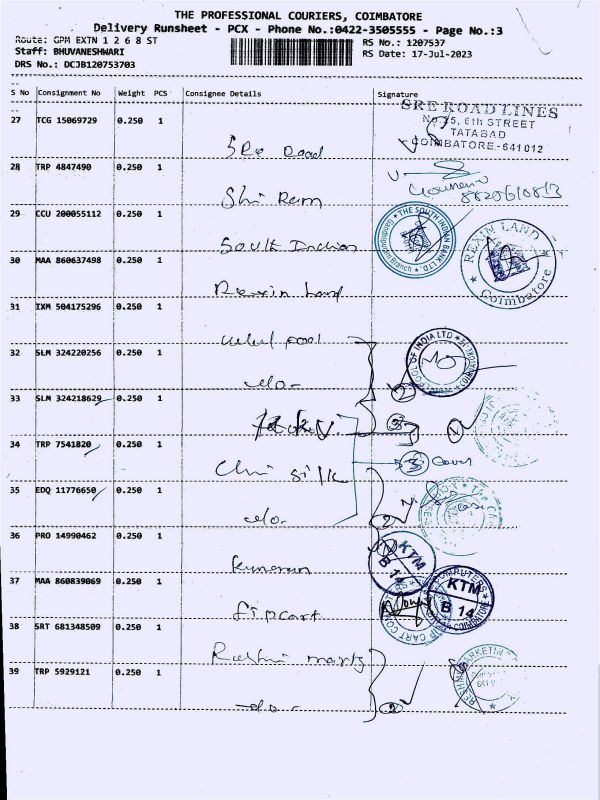 THE PROFESSIONAL COURIERS, COIMBATORE
Delivery Runsheet - PCX - Phone No.:0422-3505555 - Page No.:3
Route: GPM EXTN 1 2 6 8 ST
RS No.: 1207537
Staff: BHUVANESHWARI
RS Date: 17-Jul-2023
DRS No.: DCJB120753703
S No Consignment No Weight PCS Consignee Details Signature
27 TCG 15069729 0.250 1
SRE ROAD LINES
No.75, 6th STREET
TATABAD
COIMBATORE-641012
Sre Road
28 TRP 4847490 0.250 1
Shri Ram
29 CCU 200055112 0.250 1
THE SOUTH INDIAN BANK LTD
Gandhipuram Branch
South Indian
30 MAA 860637498 0.250 1
REXIN LAND
Coimbatore
Rexin Land
31 IXM 504175296 0.250 1
32 SLM 324220256 0.250 1
OF INDIA LTD
do-
2
33 SLM 324218629 0.250 1
3
34 TRP 7541820 0.250 1
3 Cover
Chi Silk
35 EDQ 11776650 0.250 1
do-
2
36 PRO 14990462 0.250 1
KTM
B 14
Kumaran
37 MAA 860839069 0.250 1
COMPUTERS
KTM
B 14
COIMBATORE
flipcart
38 SRT 681348509 0.250 1
39 TRP 5929121 0.250 1
do-
2